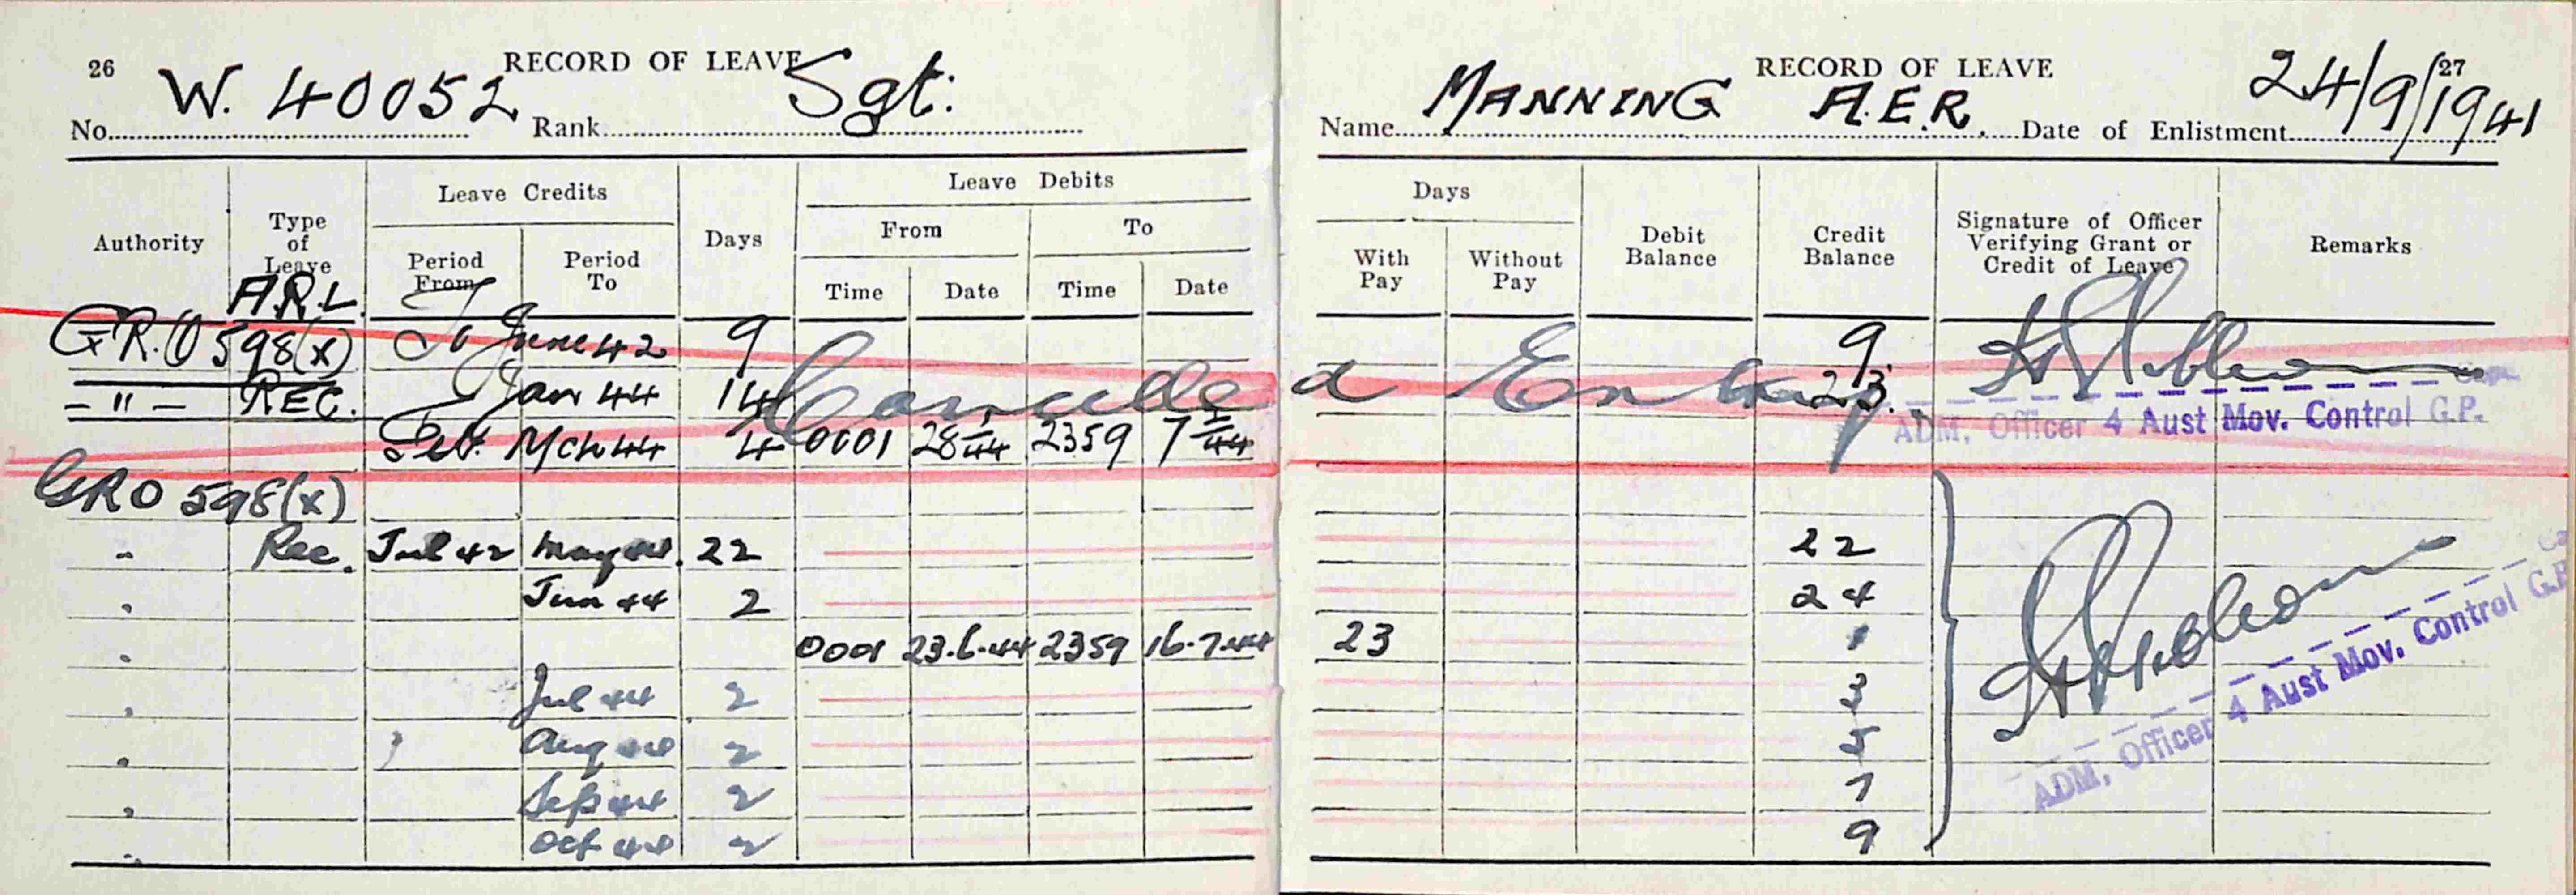 26 RECORD OF LEAVE
No. W. 40052 Rank Sgt.
Authority Type of Leave Leave Credits Days Leave Debits
Period From Period To From To
Time Date Time Date
A.R.L.
G.R.O 598(x) To June 42 9
- " - REC. Jan 44 14 Cancelled
Feb. Mch 44 4 0001 28 2359 7
GRO 598(x)
" Rec. Jul 42 May 44. 22
" Jun 44 2
" 0001 23.6.44 2359 16.7.44
" Jul 44 2
" Aug 44 2
" Sep 44 2
" Oct 44 2
RECORD OF LEAVE 27
Name MANNING A.E.R. Date of Enlistment 24/9/1941
Days Debit Balance Credit Balance Signature of Officer Verifying Grant or Credit of Leave Remarks
With Pay Without Pay
9
Entry 23.
ADM. Officer 4 Aust Mov. Control G.P.
22
24
23 1
3
5
7
9
ADM. Officer 4 Aust Mov. Control G.P.